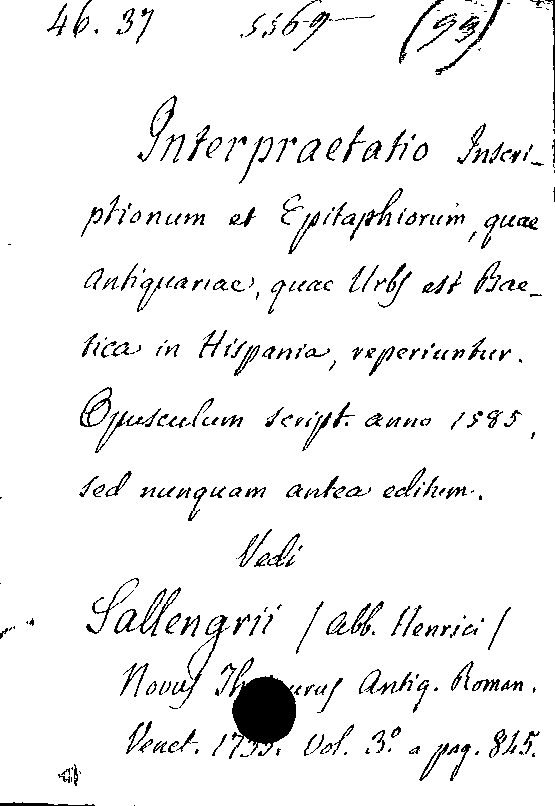 46. 37 5569 (93)
Interpraetatio Inscri-
ptionum et Epitaphiorum, quae
Antiquariae, quae Urbs est Bae-
tica in Hispania, reperiuntur.
Opusculum script. anno 1585,
sed nunquam antea editum.
Vedi
Sallengrii / Abb. Henrici /
Novus Antiq. Roman.
Venet. Vol. 3.º a pag. 845.